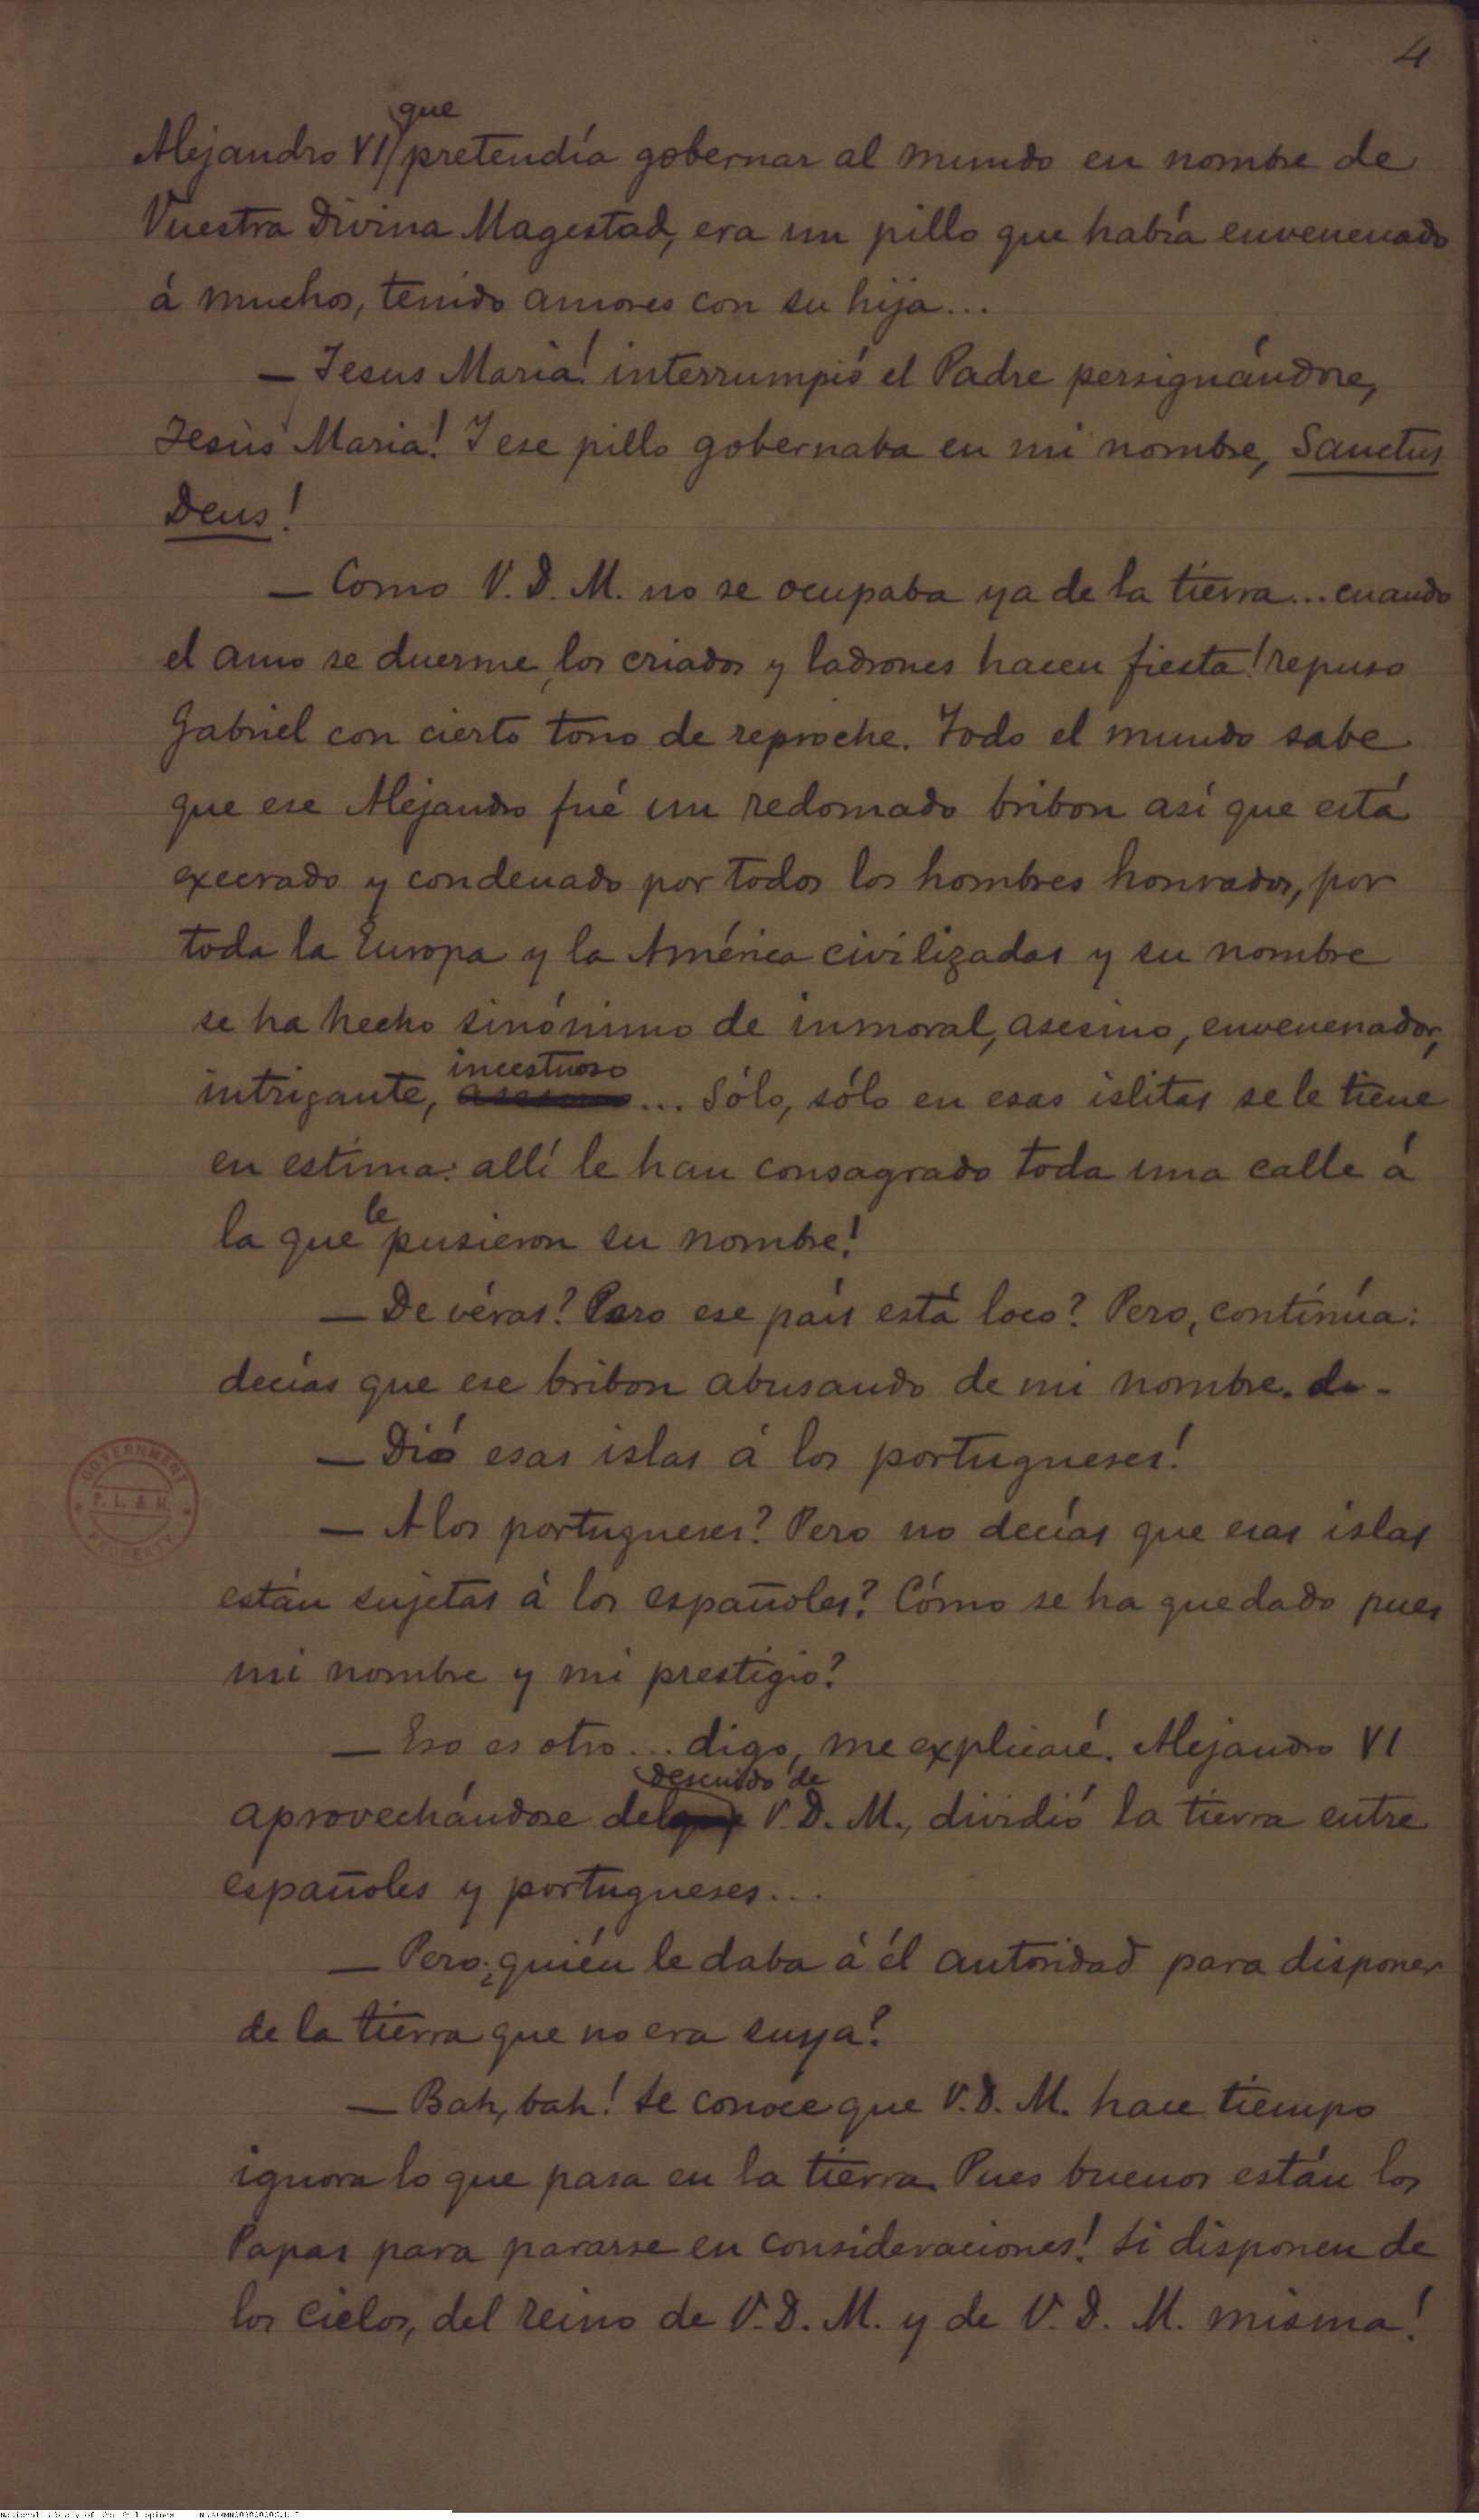 4
que
Alejandro VI pretendía gobernar al mundo en nombre de
Vuestra Divina Magestad, era un pillo que había envenenado
á muchos, tenido amores con su hija...
— Jesus Maria! interrumpió el Padre persignándose,
Jesús Maria! Y ese pillo gobernaba en mi nombre, Sanctus
Deus!
— Como V. D. M. no se ocupaba ya de la tierra... cuando
el amo se duerme, los criados y ladrones hacen fiesta! repuso
Gabriel con cierto tono de reproche. Todo el mundo sabe
que ese Alejandro fué un redomado bribon así que está
execrado y condenado por todos los hombres honrados, por
toda la Europa y la América civilizadas y su nombre
se ha hecho sinónimo de inmoral, asesino, envenenador,
incestuoso
intrigante, ... Sólo, sólo en esas islitas se le tiene
en estima: allí le han consagrado toda una calle á
le
la que pusieron su nombre!
— De véras? Pero ese país está loco? Pero, continúa:
decías que ese bribon abusando de mi nombre. de -
— Dió esas islas á los portugueses!
— A los portugueses? Pero no decías que esas islas
están sujetas á los españoles? Cómo se ha quedado pues
mi nombre y mi prestigio?
— Eso es otro... digo, me explicaré. Alejandro VI
descuido de
aprovechándose del V. D. M., dividió la tierra entre
españoles y portugueses...
— Pero ¿quién le daba á él autoridad para disponer
de la tierra que no era suya?
— Bah, bah! Se conoce que V. D. M. hace tiempo
ignora lo que pasa en la tierra. Pues buenos están los
Papas para pararse en consideraciones! Si disponen de
los cielos, del reino de V. D. M. y de V. D. M. misma!
GOVERNMENT
P. L. & M.
PROPERTY